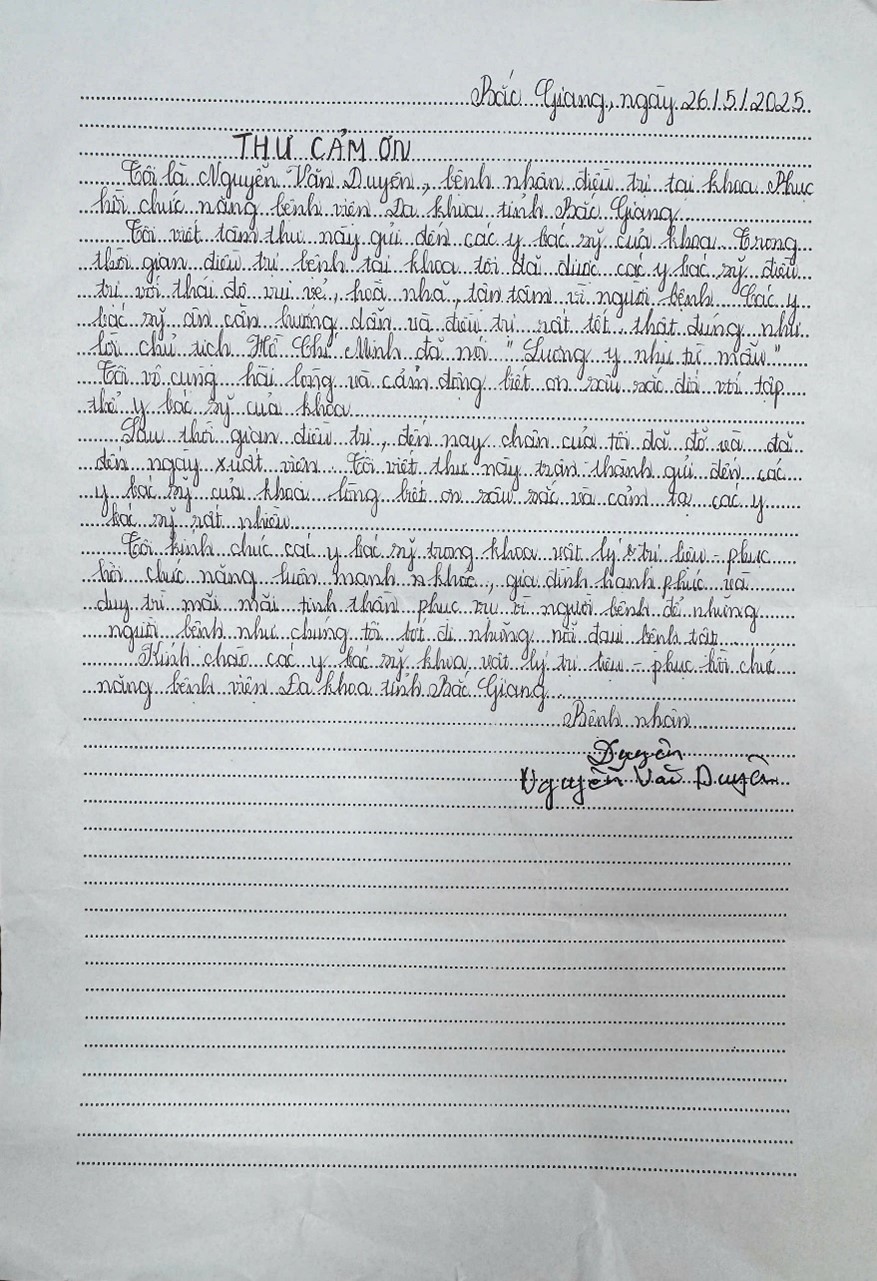 Bắc Giang, ngày 26/5/2025
THƯ CẢM ƠN
Tôi là Nguyễn Văn Duyên, bệnh nhân điều trị tại khoa Phục
hồi chức năng bệnh viện Đa khoa tỉnh Bắc Giang
Tôi viết tâm thư này gửi đến các y bác sỹ của khoa. Trong
thời gian điều trị bệnh tại khoa tôi đã được các y bác sỹ điều
trị với thái độ vui vẻ, hoà nhã, tận tâm vì người bệnh. Các y
bác sỹ ân cần hướng dẫn và điều trị rất tốt thật đúng như
lời chủ tịch Hồ Chí Minh đã nói "Lương y như từ mẫu"
Tôi vô cùng hài lòng và cảm động biết ơn sâu sắc đối với tập
thể y bác sỹ của khoa
Sau thời gian điều trị, đến nay chân của tôi đã đỡ và đã
đến ngày xuất viện. Tôi viết thư này trân thành gửi đến các
y bác sỹ của khoa lòng biết ơn sâu sắc và cảm tạ các y
bác sỹ rất nhiều
Tôi kính chúc các y bác sỹ trong khoa vật lý trị liệu - phục
hồi chức năng luôn mạnh khoẻ, gia đình hạnh phúc và
duy trì mãi mãi tinh thần phục vụ vì người bệnh để những
người bệnh như chúng tôi bớt đi những nỗi đau bệnh tật
Kính chào các y bác sỹ khoa vật lý trị liệu - phục hồi chức
năng bệnh viện Đa khoa tỉnh Bắc Giang
Bệnh nhân
Duyên
Nguyễn Văn Duyên